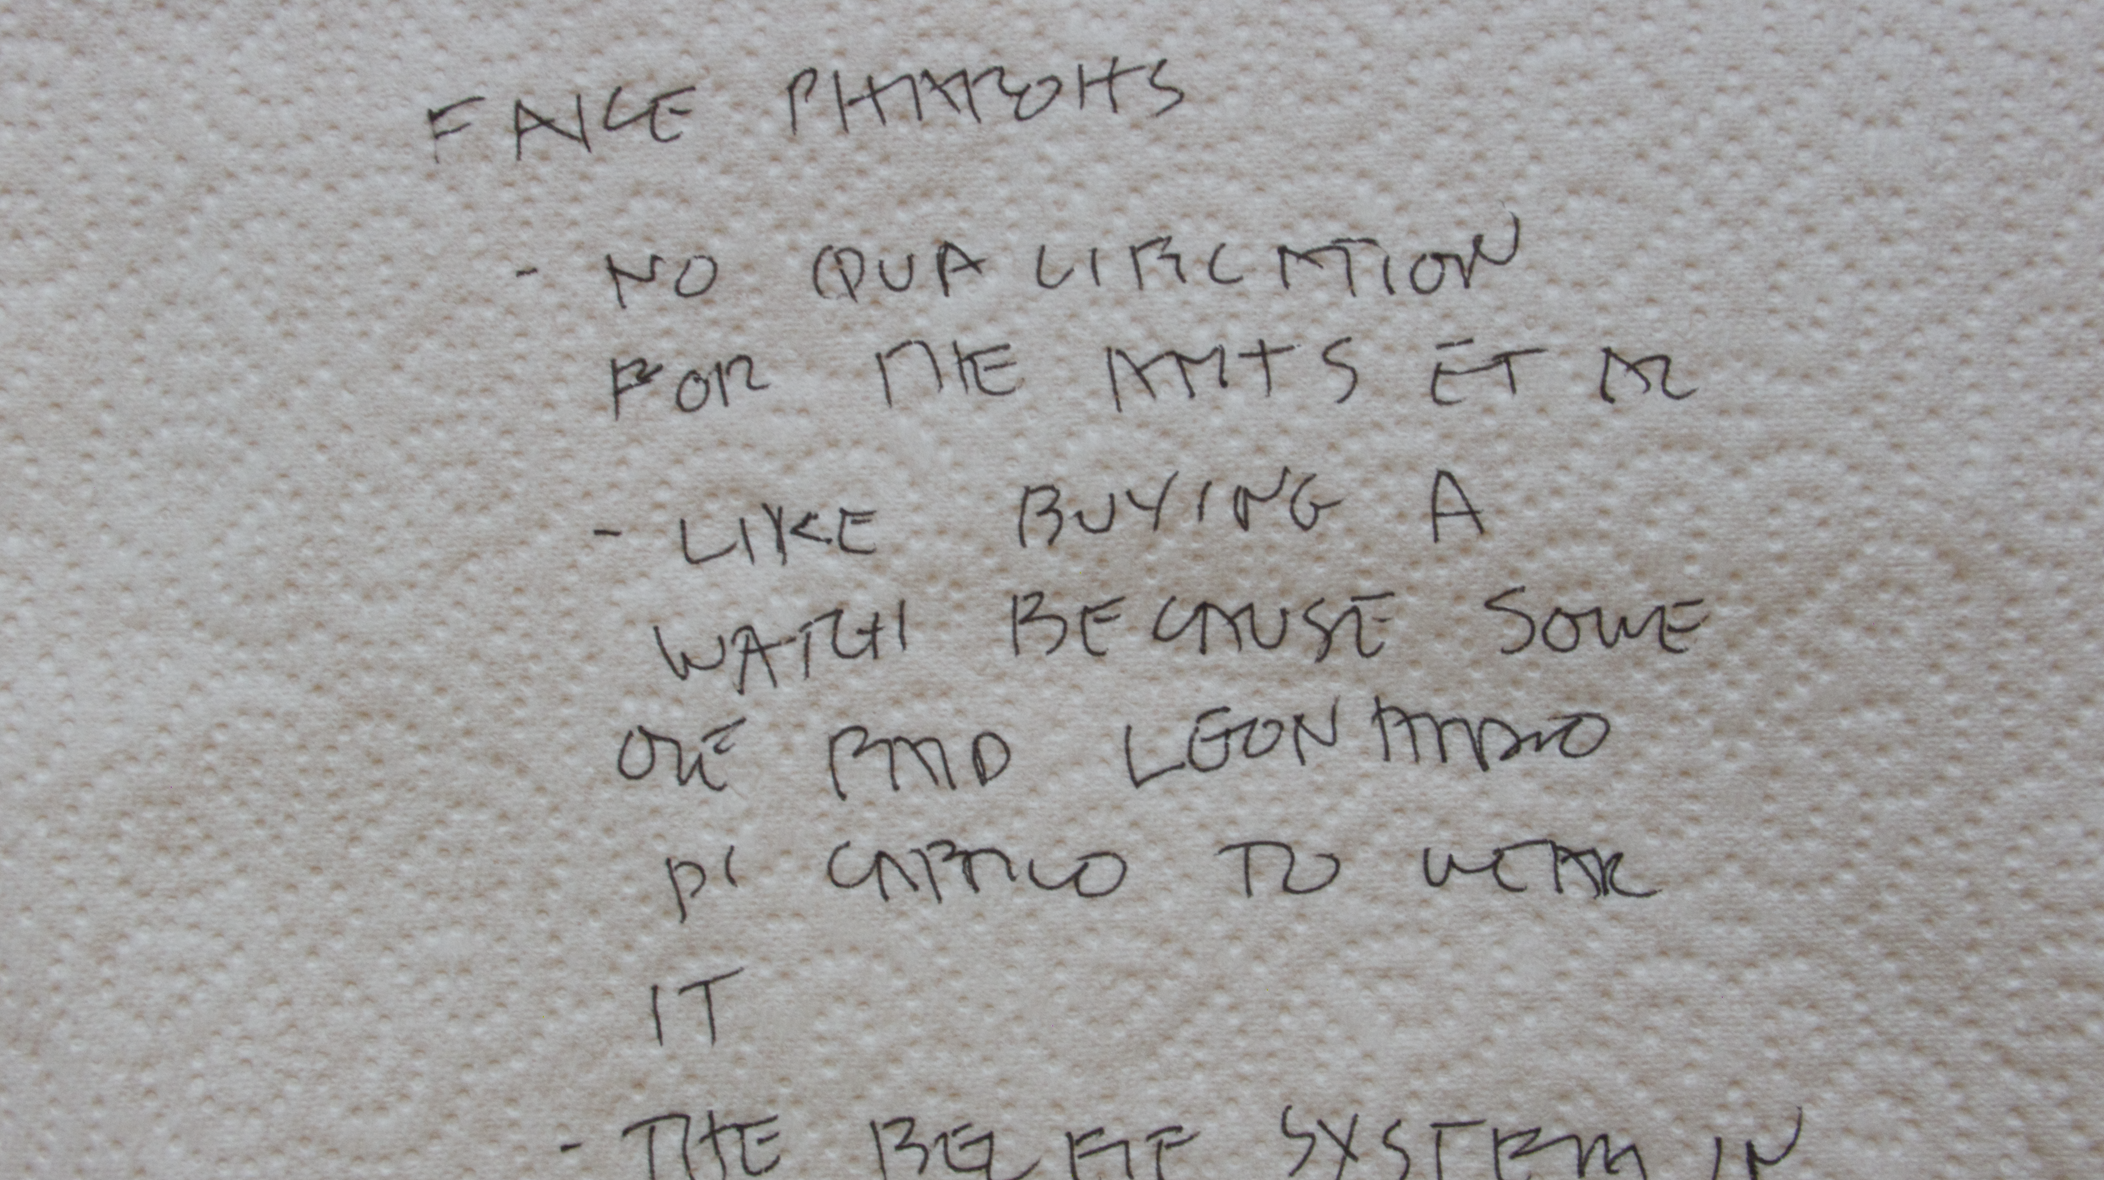 FAKE PHAROHS
- NO QUALIFICATION
FOR THE ARTS ET AL
- LIKE BUYING A
WATCH BECAUSE SOME
ONE PAID LEONARDO
DI CAPRICO TO WEAR
IT
- THE BELIEF SYSTEM IN